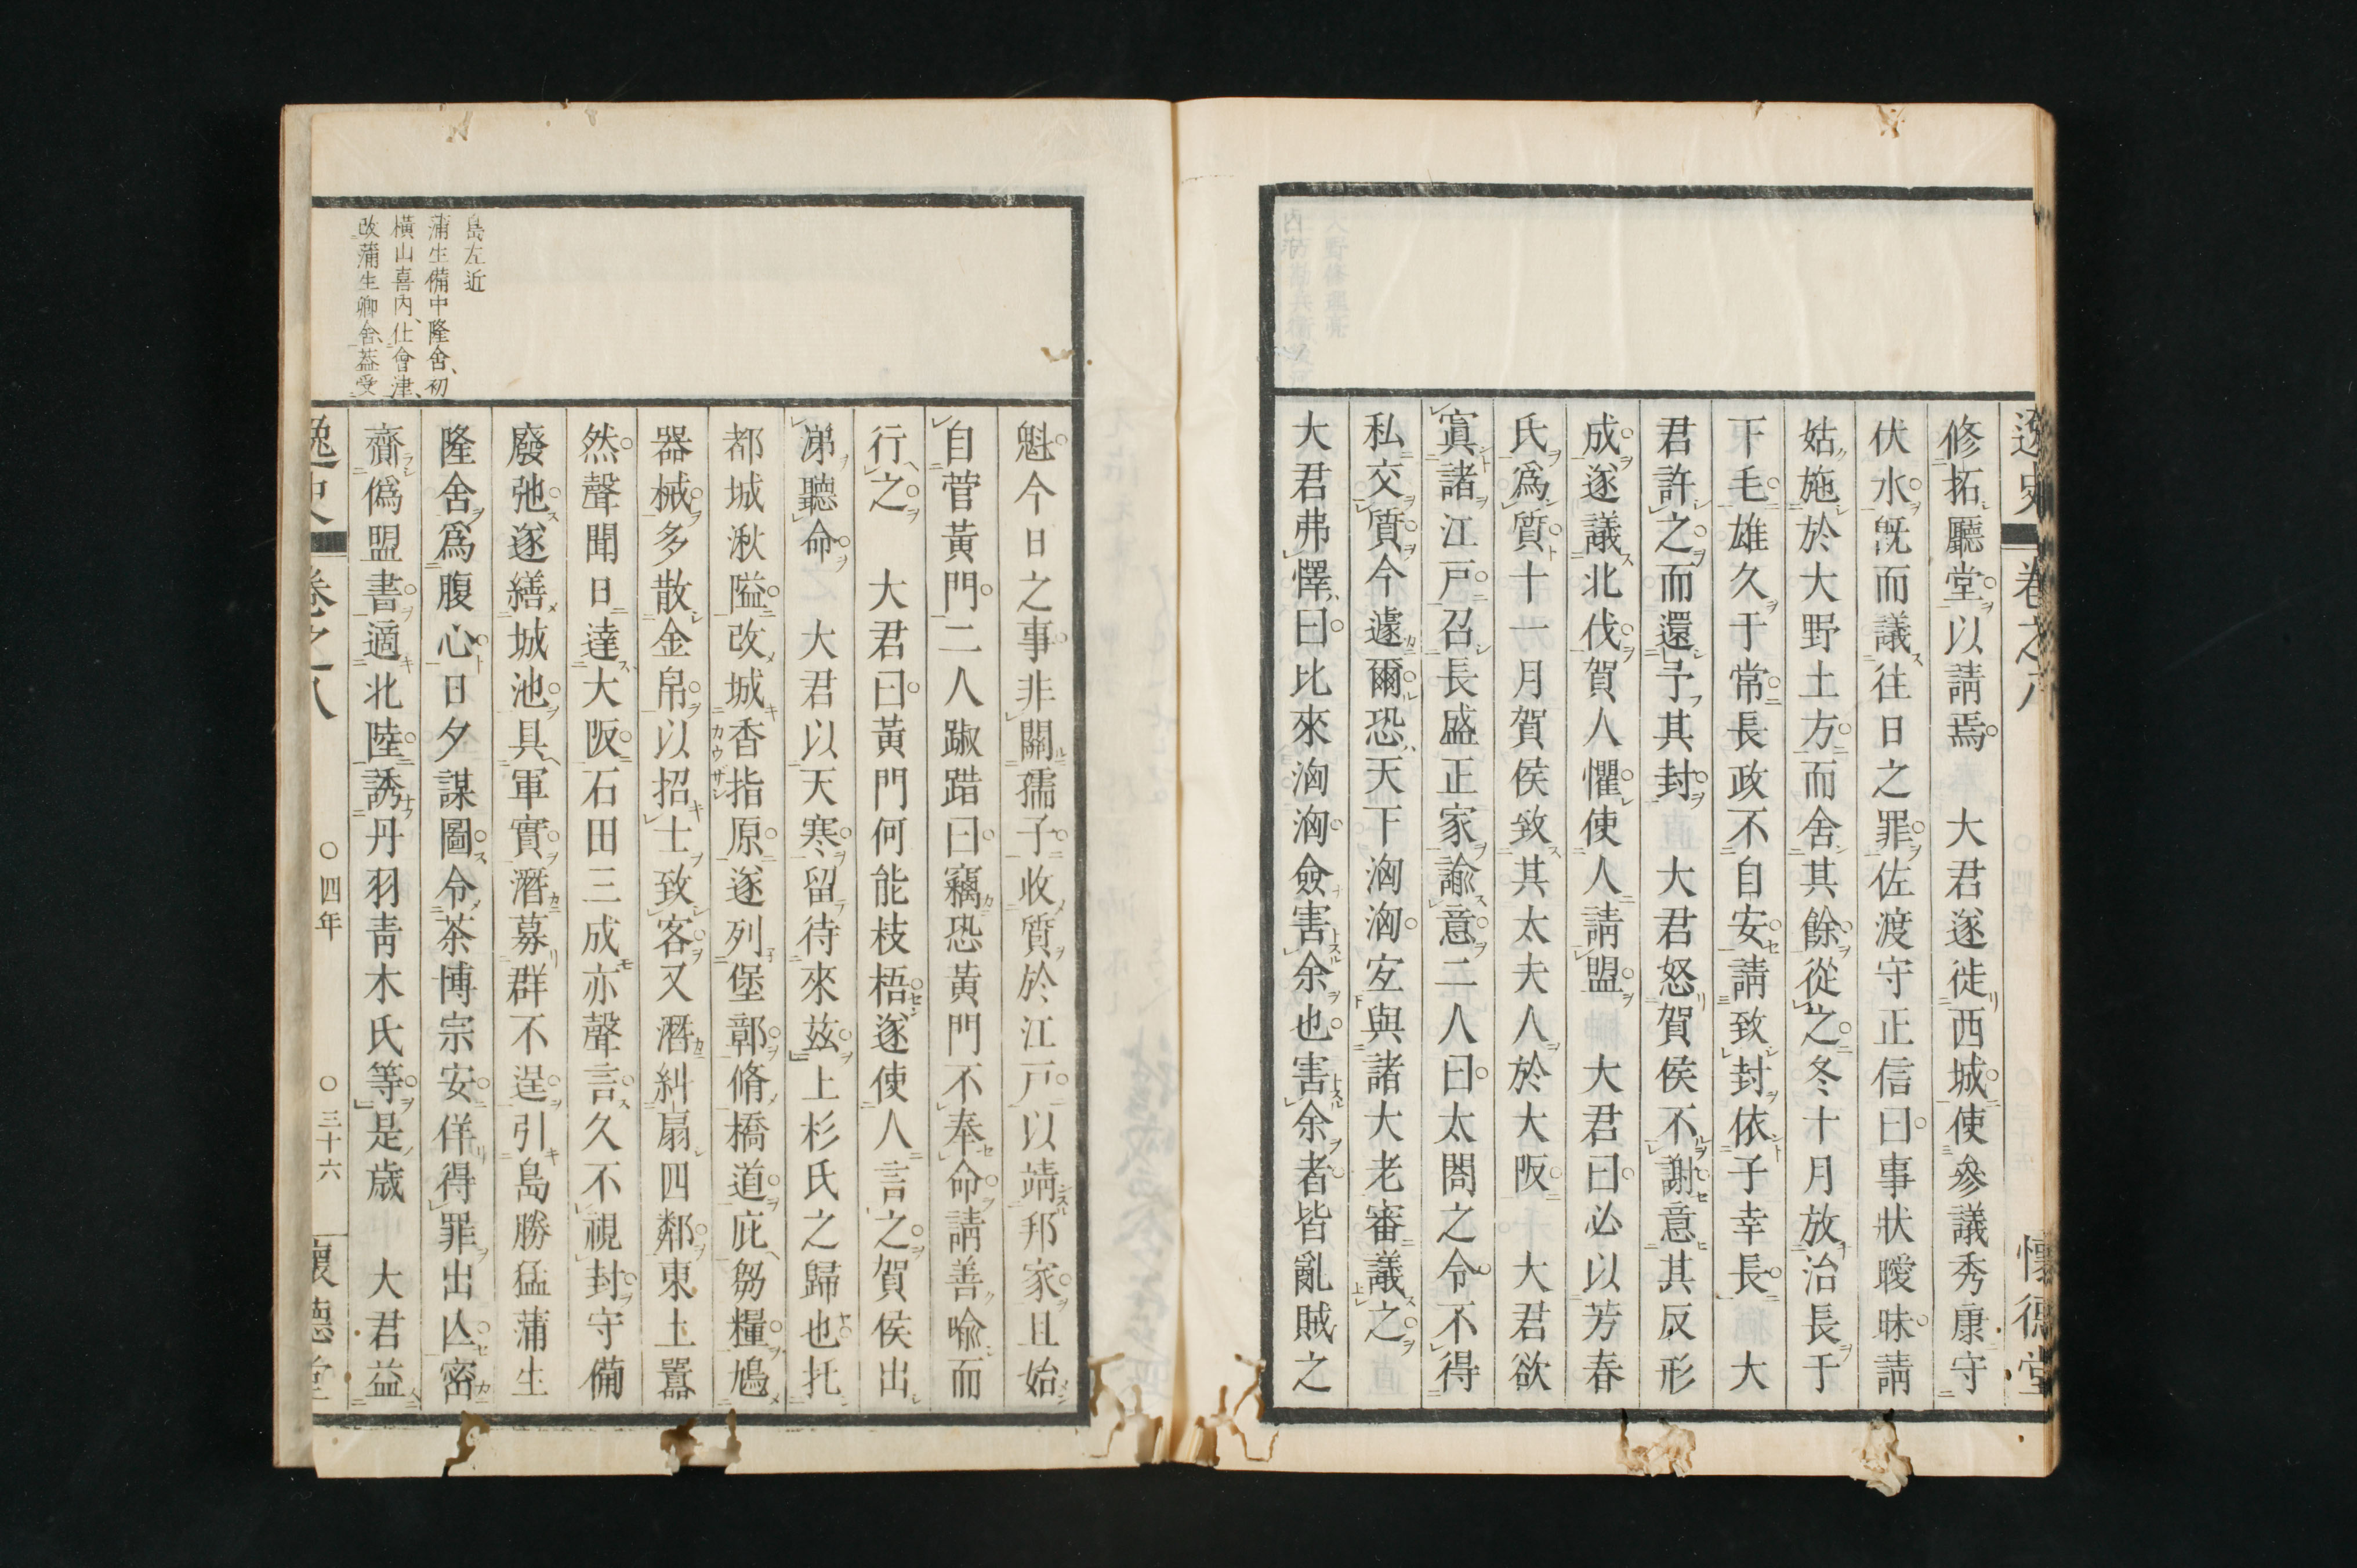 逸史 卷之八 懷德堂
修拓聽堂以請焉 大君遂徙西城使參議秀康守
伏水既而議往日之罪佐渡守正信曰事狀曖昧請
姑施於大野土方而舍其餘從之冬十月放治長于
下毛雄久于常長政不自安請致封依子幸長 大
君許之而還予其封 大君怒賀侯不謝意其反形
成遂議北伐賀人懼使人請盟 大君曰必以芳春
氏爲質十一月賀侯致其太夫人於大阪 大君欲
寘諸江戸召長盛正家諭意二人曰太閤之令不得
私交質今遽爾恐天下洶洶宐與諸大老審議之
大君弗懌曰比來洶洶僉害余也害余者皆亂賊之
魁今日之事非關孺子收質於江戸以靖邦家且始
自菅黃門二人踧踖曰竊恐黃門不奉命請善喻而
行之 大君曰黃門何能枝梧遂使人言之賀侯出
涕聽命 大君以天寒留待來茲上杉氏之歸也托
都城湫隘改城香指原遂列堡鄣脩橋道庇芻糧鳩
カウザシ
器械多散金帛以招士致客又潛糾扇四鄰東土囂
然聲聞日達大阪石田三成亦聲言久不視封守備
廢弛遂繕城池具軍實潛募群不逞引島勝猛蒲生
隆舍爲腹心日夕謀圖令茶博宗安佯得罪出亾密
齎僞盟書適北陸誘丹羽靑木氏等是歲 大君益
島左近
蒲生備中隆舍初
橫山喜內仕會津
改蒲生鄉舍葢受
逸史 卷之八 ○四年 ○三十六 懷德堂